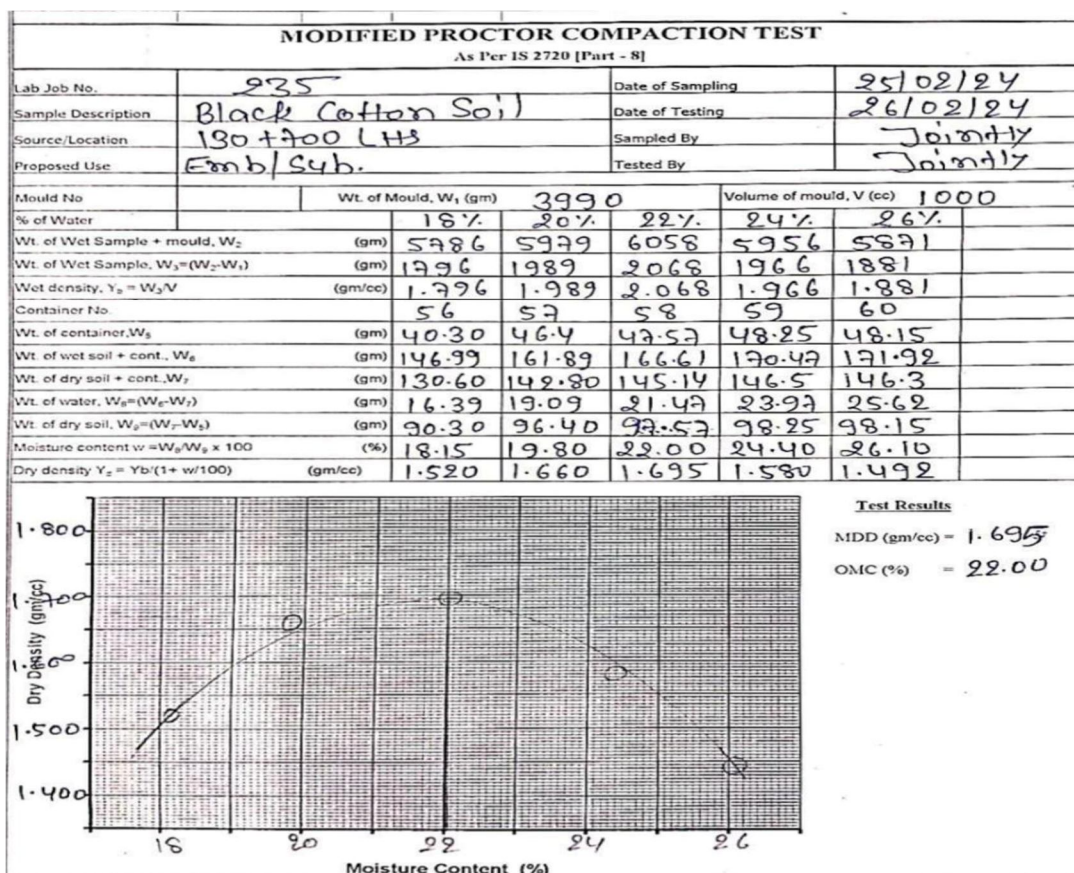 MODIFIED PROCTOR COMPACTION TEST
As Per IS 2720 [Part - 8]
Lab Job No. 235 Date of Sampling 25/02/24
Sample Description Black Cotton Soil Date of Testing 26/02/24
Source/Location 130+700 LHS Sampled By Jointly
Proposed Use Emb/Sub. Tested By Jointly
Mould No Wt. of Mould, W₁ (gm) 3990 Volume of mould, V (cc) 1000
% of Water 18% 20% 22% 24% 26%
Wt. of Wet Sample + mould, W₂ (gm) 5786 5979 6058 5956 5871
Wt. of Wet Sample, W₃=(W₂-W₁) (gm) 1796 1989 2068 1966 1881
Wet density, Y₆ = W₃/V (gm/cc) 1.796 1.989 2.068 1.966 1.881
Container No. 56 57 58 59 60
Wt. of container,W₅ (gm) 40.30 46.4 47.57 48.25 48.15
Wt. of wet soil + cont., W₆ (gm) 146.99 161.89 166.61 170.47 171.92
Wt. of dry soil + cont.,W₇ (gm) 130.60 142.80 145.14 146.5 146.3
Wt. of water, W₈=(W₆-W₇) (gm) 16.39 19.09 21.47 23.97 25.62
Wt. of dry soil, W₉=(W₇-W₅) (gm) 90.30 96.40 97.57 98.25 98.15
Moisture content w =W₈/W₉ x 100 (%) 18.15 19.80 22.00 24.40 26.10
Dry density Y₂ = Yb/(1+ w/100) (gm/cc) 1.520 1.660 1.695 1.580 1.492
Test Results
MDD (gm/cc) = 1.695
OMC (%) = 22.00
Dry Density (gm/cc)
1.800
1.700
1.600
1.500
1.400
18 20 22 24 26
Moisture Content (%)